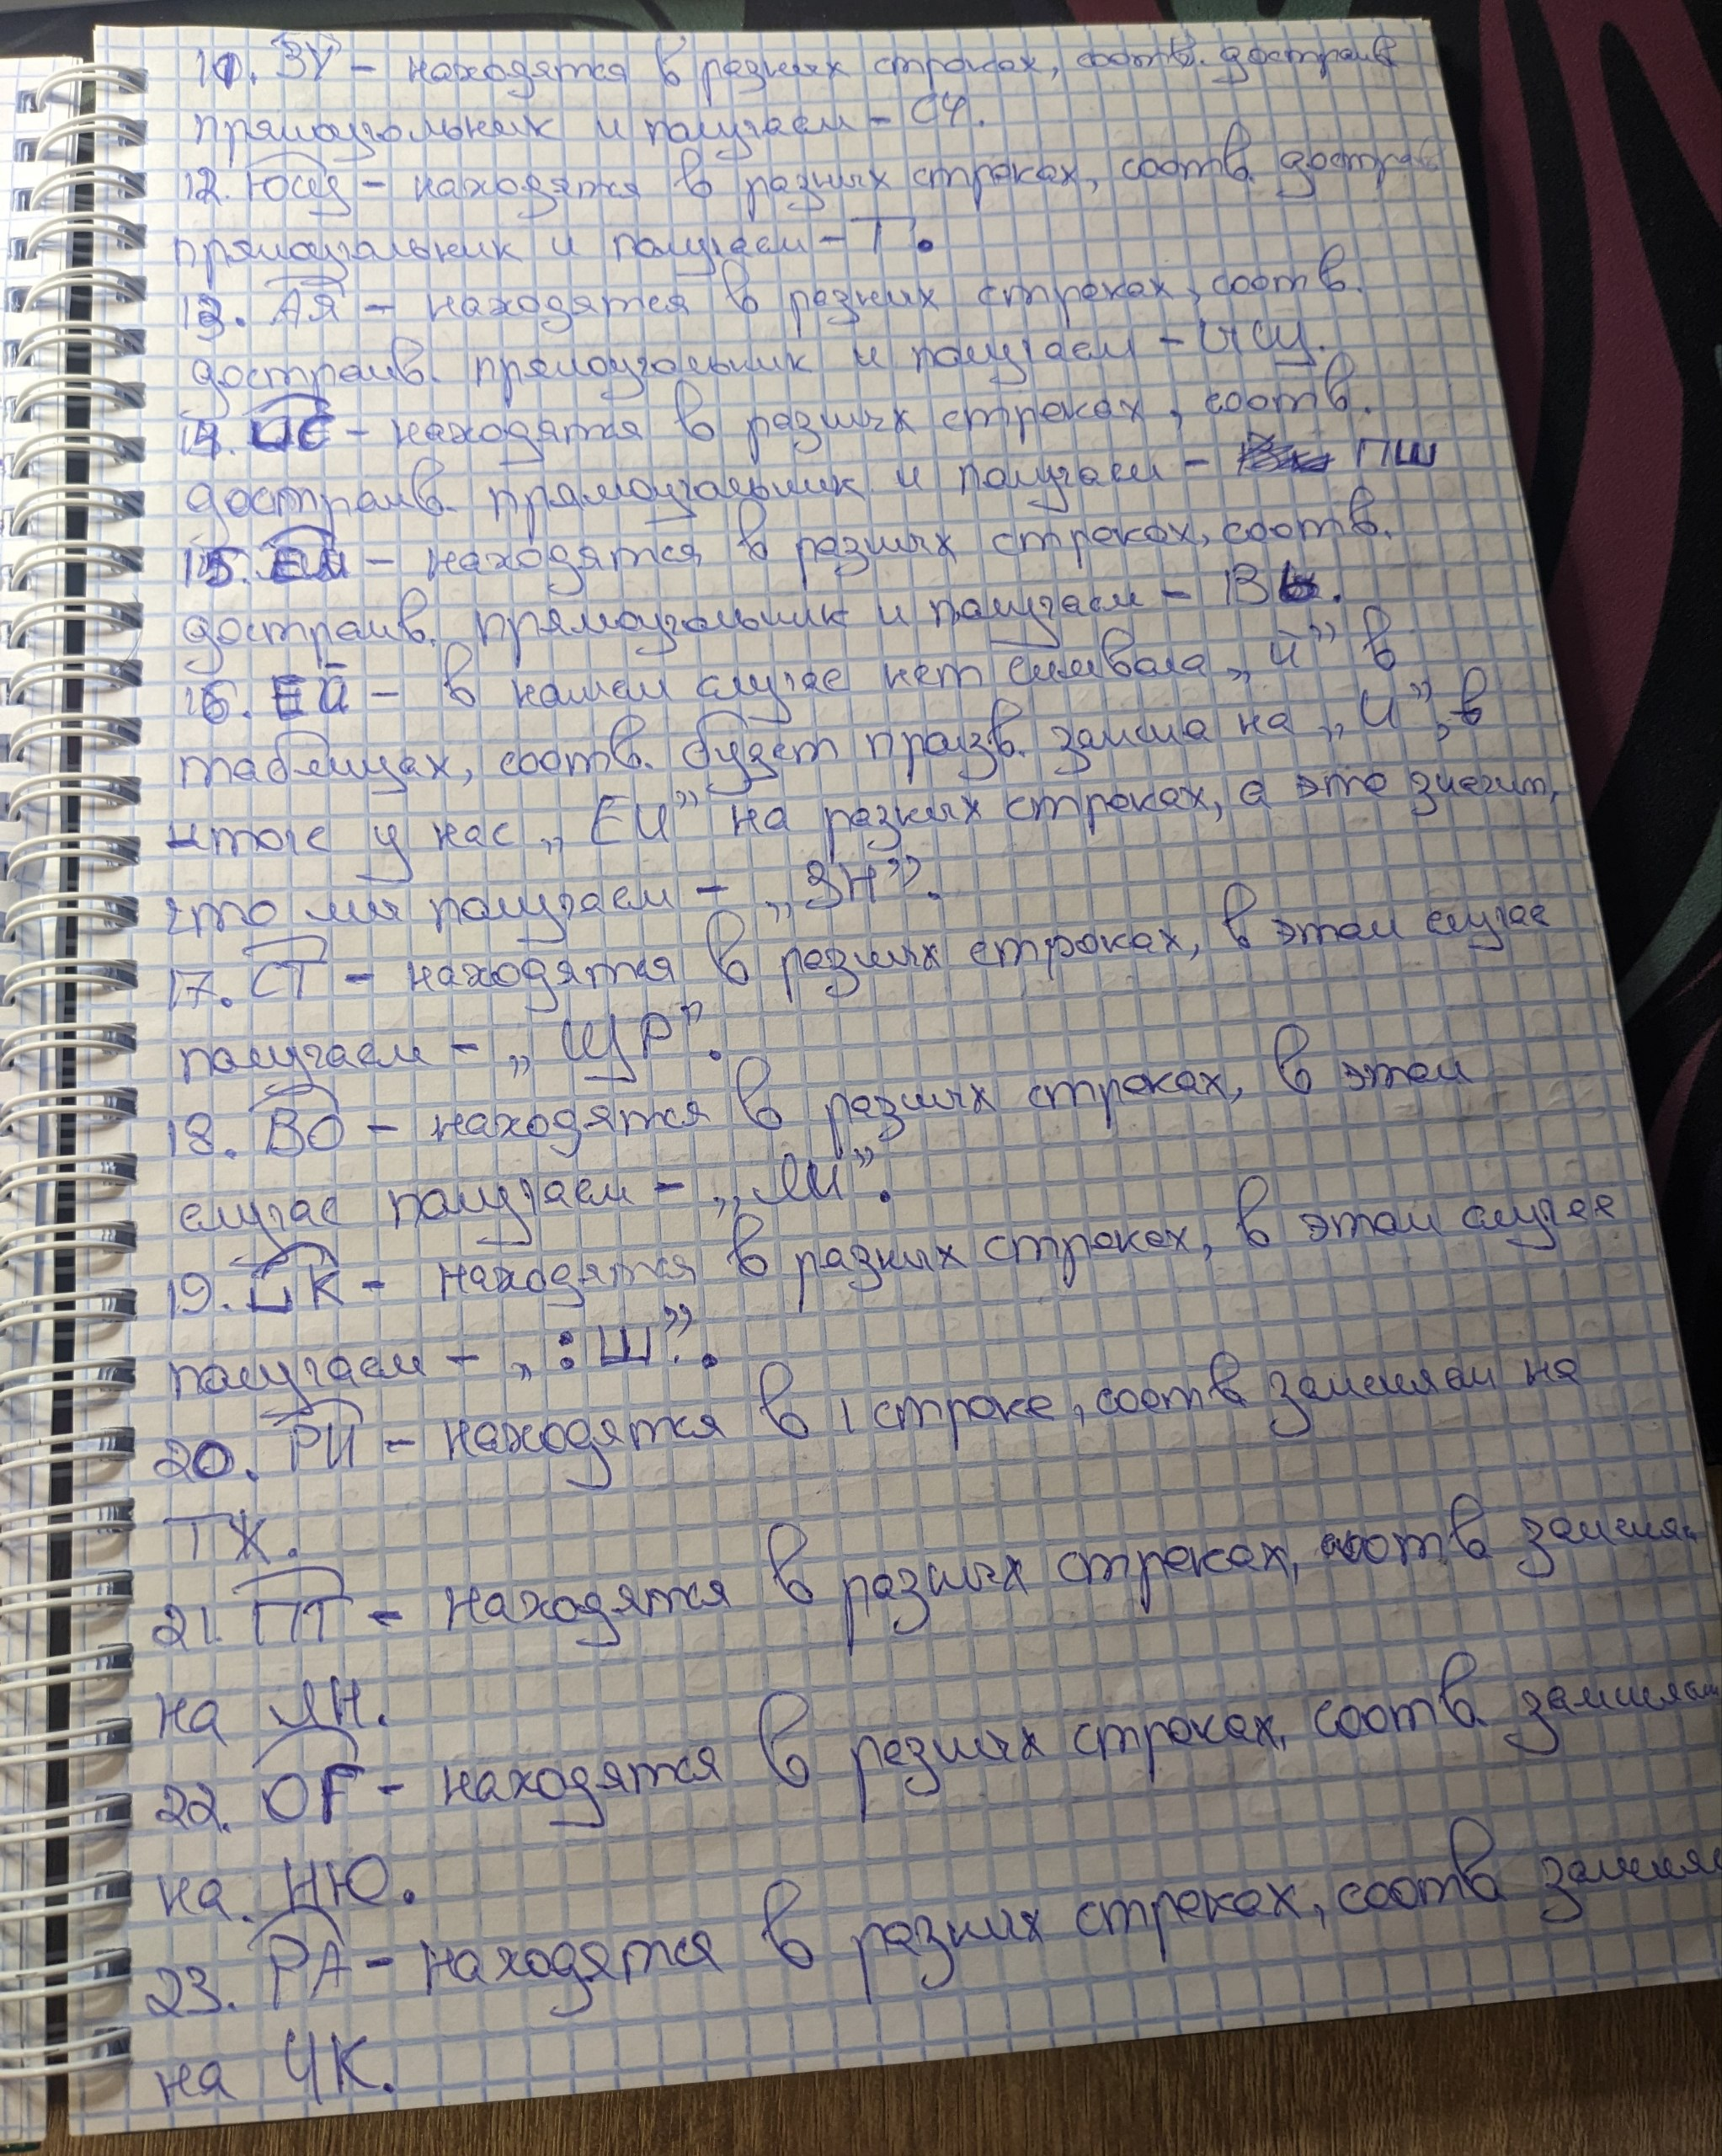 11. ЗУ – находятся в разных строках, соотв. достраив
прямоугольник и получаем – СЧ.
12. Ющ – находятся в разных строках, соотв. достраив
прямоугольник и получаем – Т.
13. АЯ – находятся в разных строках, соотв.
достраив. прямоугольник и получаем –
14. – находятся в разных строках, соотв.
достраив. прямоугольник и получаем – ПШ
15. – находятся в разных строках, соотв.
достраив. прямоугольник и получаем – ВЬ.
16. ЕЙ – в нашем случае нет символа „й” в
таблицах, соотв. будет произв. замена на „И”, в
итоге у нас „ЕИ” на разных строках, а это значит,
что мы получаем – „ЗН”.
17. СТ – находятся в разных строках, в этом случае
получаем – „ЩР”.
18. ВО – находятся в разных строках, в этом
случае получаем – „ЛИ”.
19. ЦК – находятся в разных строках, в этом случае
получаем – „:Ш”.
20. РИ – находятся в 1 строке, соотв заменяем на
ТЖ.
21. ПТ – находятся в разных строках, соотв заменя
на ЛН.
22. ОГ – находятся в разных строках, соотв. заменяем
на. НЮ.
23. РА – находятся в разных строках, соотв заменя
на ЧК.